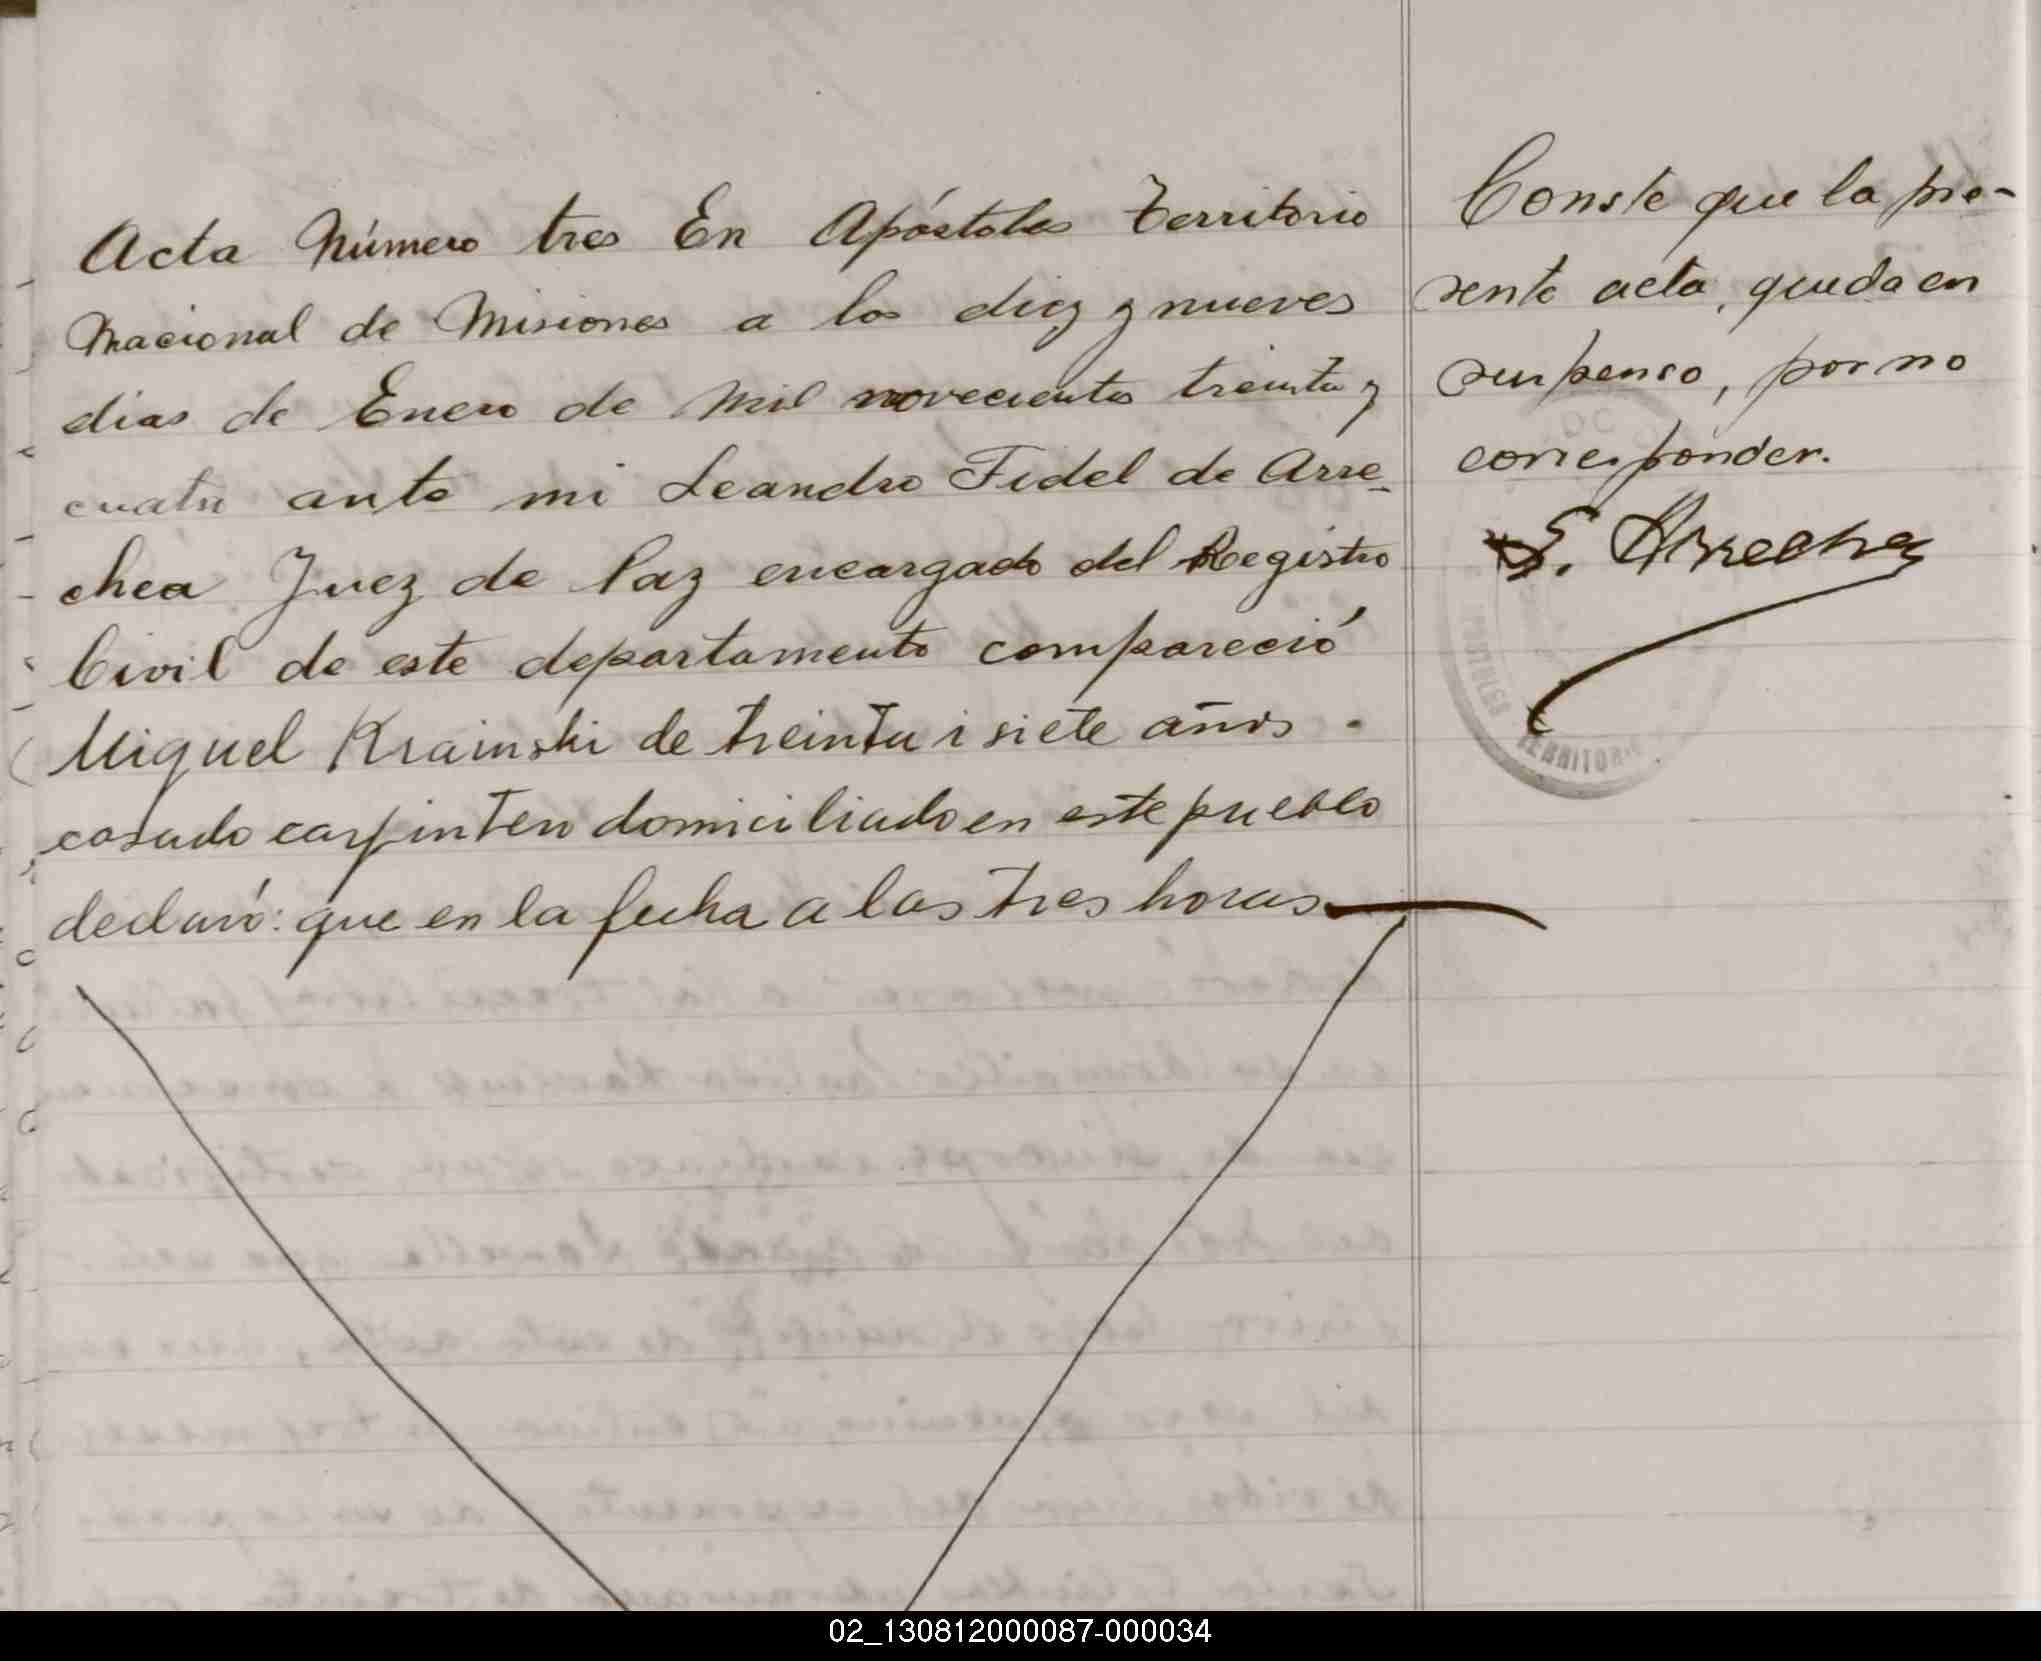 Acta Número tres En Apóstoles Territorio
Nacional de Misiones a los diez y nueves
dias de Enero de mil novecientos treinta y
cuatro ante mi Leandro Fidel de Arre-
chea Juez de Paz encargado del Registro
Civil de este departamento compareció
Miguel Krainski de treinta i siete años.
casado carpintero domiciliado en este pueblo
declaró: que en la fecha a las tres horas
Conste que la pre-
sente acta, queda en
suspenso, por no
corresponder.
Arrechea
TERRITORIO
02_130812000087-000034